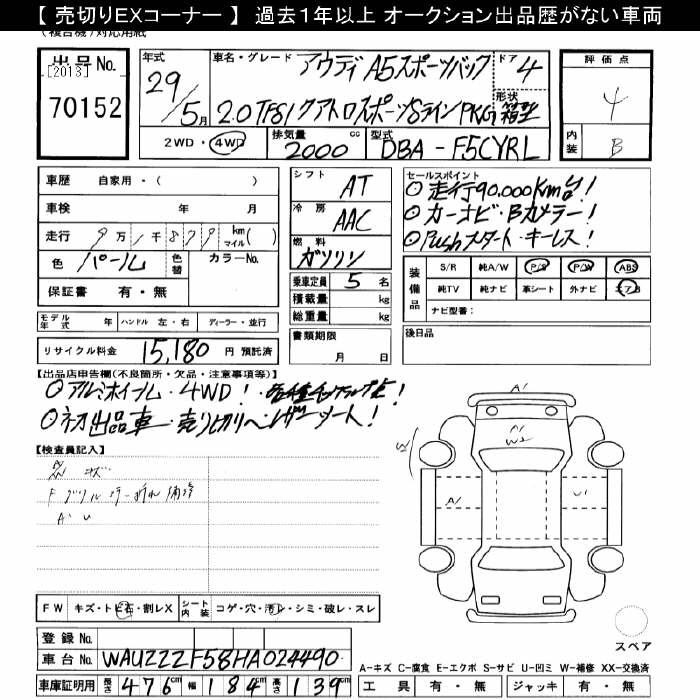 【 売切りEXコーナー 】 過去1年以上 オークション出品歴がない車両
(複合機)対応用紙
出品No.
[2013]
70152
年式
29年
5月
車名・グレード
アウディ A5スポーツバック
2.0TFSI クアトロスポーツSラインPKG
ドア
4
形状
箱型
評価点
4
内装
B
2WD・4WD
排気量
2000 cc
型式
DBA-F5CYRL
車歴 自家用・( )
車検 年 月
走行 9万1千879 km マイル( )
色 パール 色替 カラーNo.
保証書 有・無
シフト
AT
冷房
AAC
燃料
ガソリン
乗車定員 5 名
積載量 kg
総重量 kg
セールスポイント
◎走行90,000Km台!
◎カーナビ・Bカメラー!
◎Pushスタート・キーレス!
装備品
S/R 純A/W P/S P/W ABS
純TV 純ナビ 革シート 外ナビ エアB
ナビ型番:
モデル年式 年 ハンドル 左・右 ディーラー・並行
リサイクル料金 15,180 円 預託済
書類期限
月 日
後日品
【出品店申告欄(不良箇所・欠品・注意事項等)】
◎アルミホイール・4WD!
◎初出品車・売り切りへ・レザーシート!
【検査員記入】
A1
W2
W2
A1
U1
FW キズ・トビ石・割レX シート内装 コゲ・穴・汚レ・シミ・破レ・スレ
登録No.
車台No. WAUZZZF58HA024490
車庫証明用 長さ 476cm 幅 184cm 高さ 139cm
スペア
A-キズ C-腐食 E-エクボ S-サビ U-凹ミ W-補修 XX-交換済
工具 有・無 ジャッキ 有・無